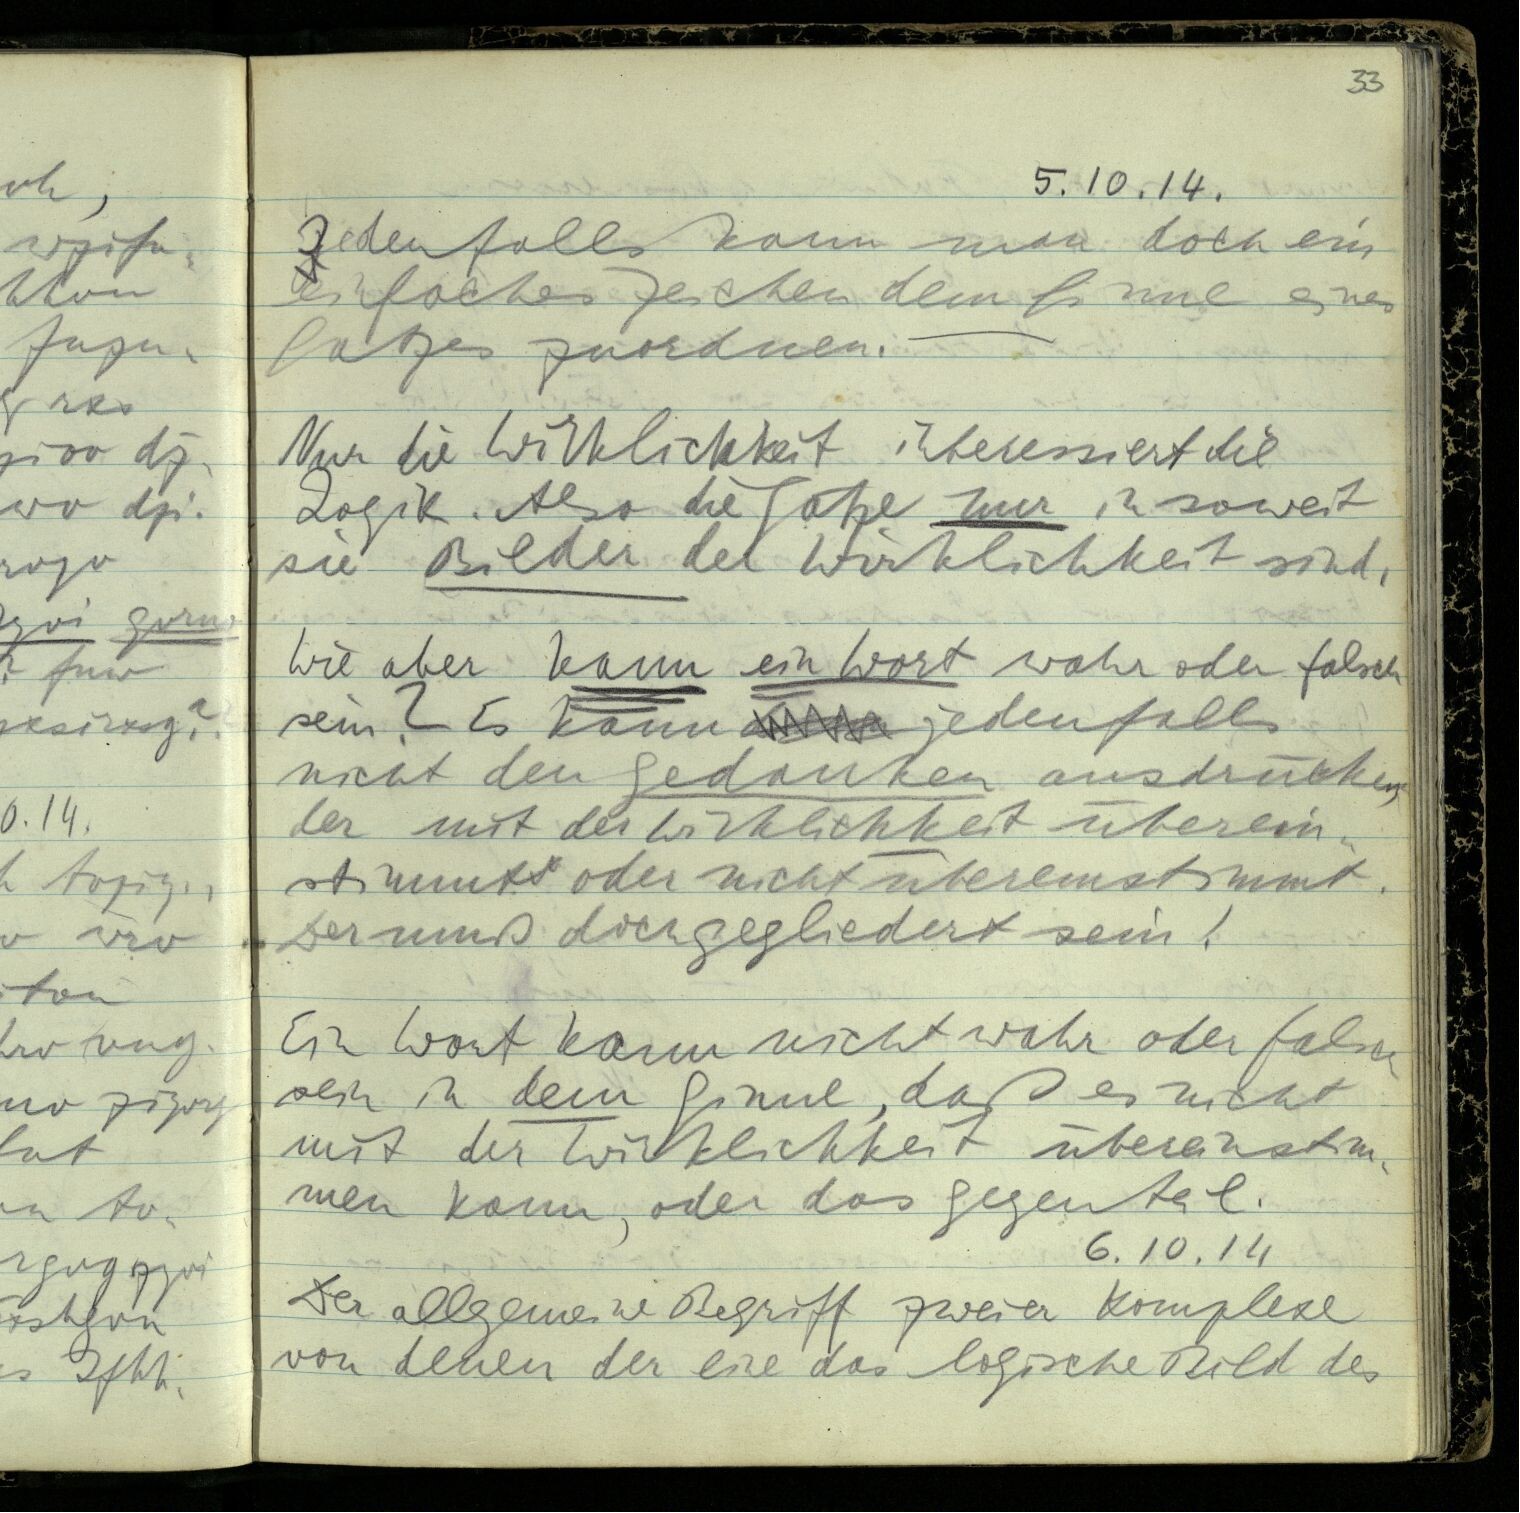 oh,
wzifu.
hhou
fuzu.
rks
ziro dz.
wo dzi.
rozo
zvi gvrn
fuw
rksirvsg?
0.14.
h tvziz.,
v vrv
itou
hrv vng.
nv zizvrg
lut
vn tv.
rgvgzzvi
rshgvn
s Zfhh.
33
5.10.14.
Jedenfalls kann man doch ein
einfaches Zeichen dem Sinne eines
Satzes zuordnen. —
Nur die Wirklichkeit interessiert die
Logik. Also die Sätze nur in soweit
sie Bilder der Wirklichkeit sind.
Wie aber kann ein Wort wahr oder falsch
sein? Es kann jedenfalls
nicht den Gedanken ausdrücken,
der mit der Wirklichkeit überein-
stimmt oder nicht übereinstimmt.
Der muß doch gegliedert sein!
Ein Wort kann nicht wahr oder falsch
sein in dem Sinne, daß es nicht
mit der Wirklichkeit übereinstim-
men kann, oder das Gegenteil.
6.10.14
Der allgemeine Begriff zweier Komplexe
von denen der eine das logische Bild des